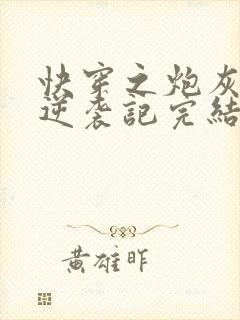 快穿之炮灰
逆袭記完結
黃雄昨